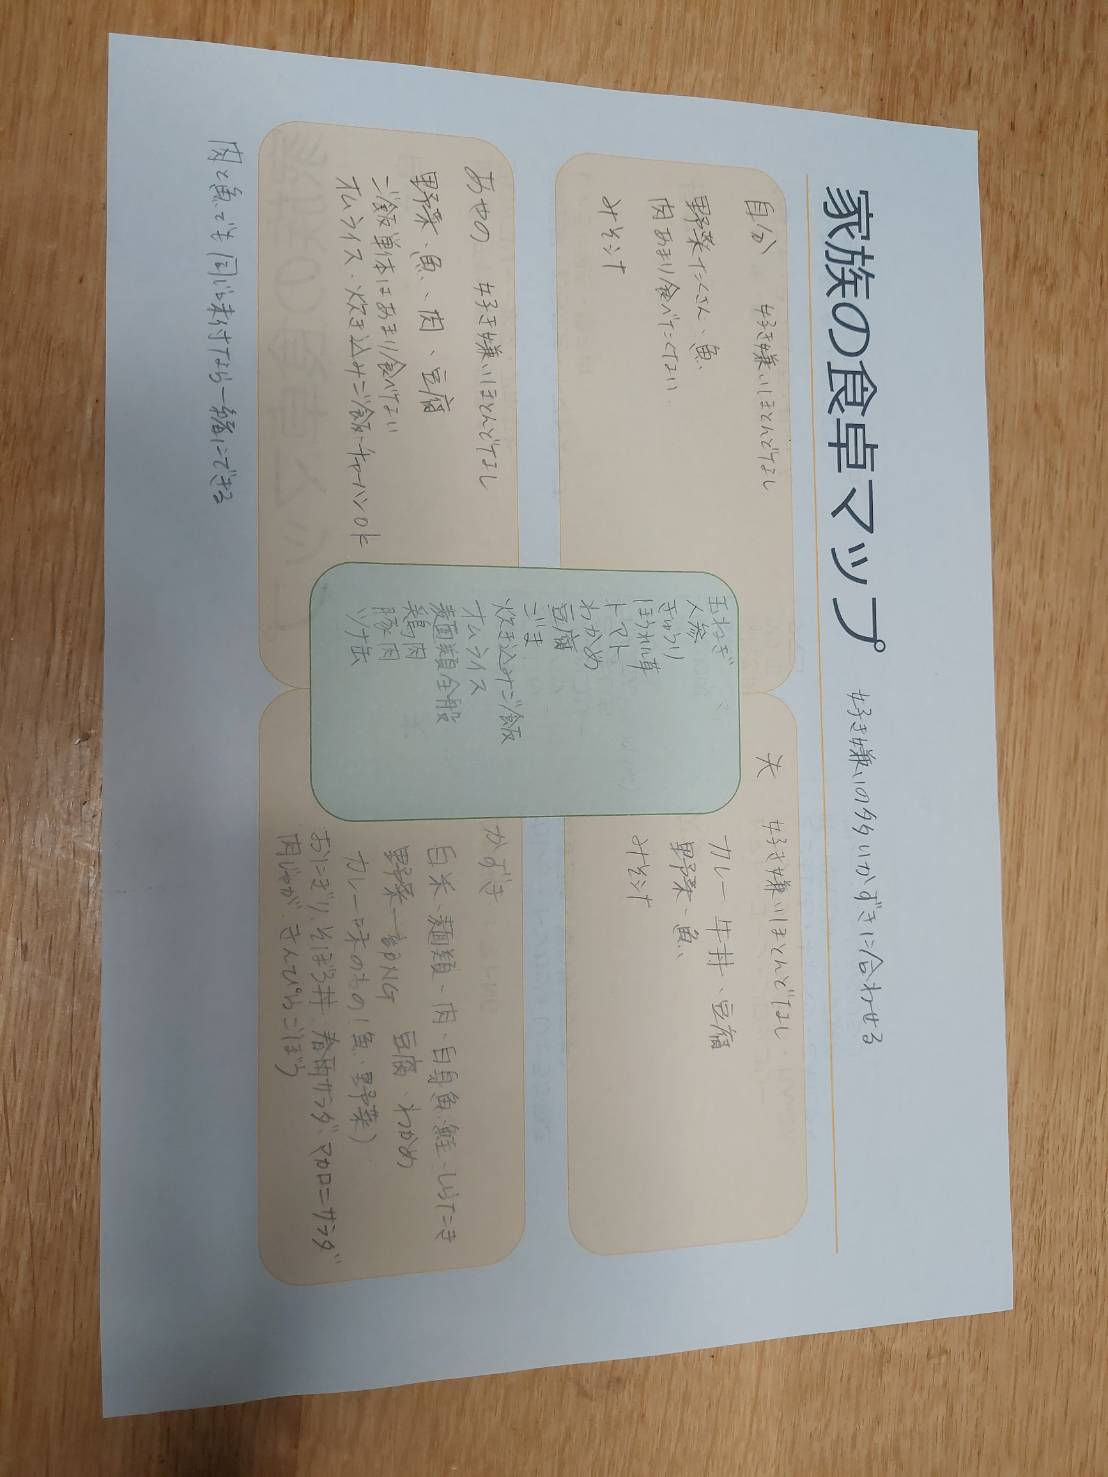 家族の食卓マップ 好き嫌いの多いかずきに合わせる
自分 好き嫌いほとんどなし
野菜たくさん、魚
肉あまり食べたくない
みそ汁
夫 好き嫌いほとんどなし
カレー 牛丼、豆腐
野菜、魚、
みそ汁
玉ねぎ
人参
きゅうり
ほうれん草
トマト
わかめ
豆腐
ごま
炊き込みご飯
オムライス
麺類全般
鶏肉
豚肉
ツナ缶
あやの 好き嫌いほとんどなし
野菜、魚、肉、豆腐
ご飯単体はあまり食べない
オムライス・炊き込みご飯・チャーハンOK
かずき
白米、麺類、肉、白身魚、鮭、しらたき
野菜一部NG 豆腐、わかめ
カレー味のもの(魚・野菜)
おにぎり、そぼろ丼、春雨サラダ、マカロニサラダ
肉じゃが、きんぴらごぼう
肉と魚でも同じ味付なら一緒にできる